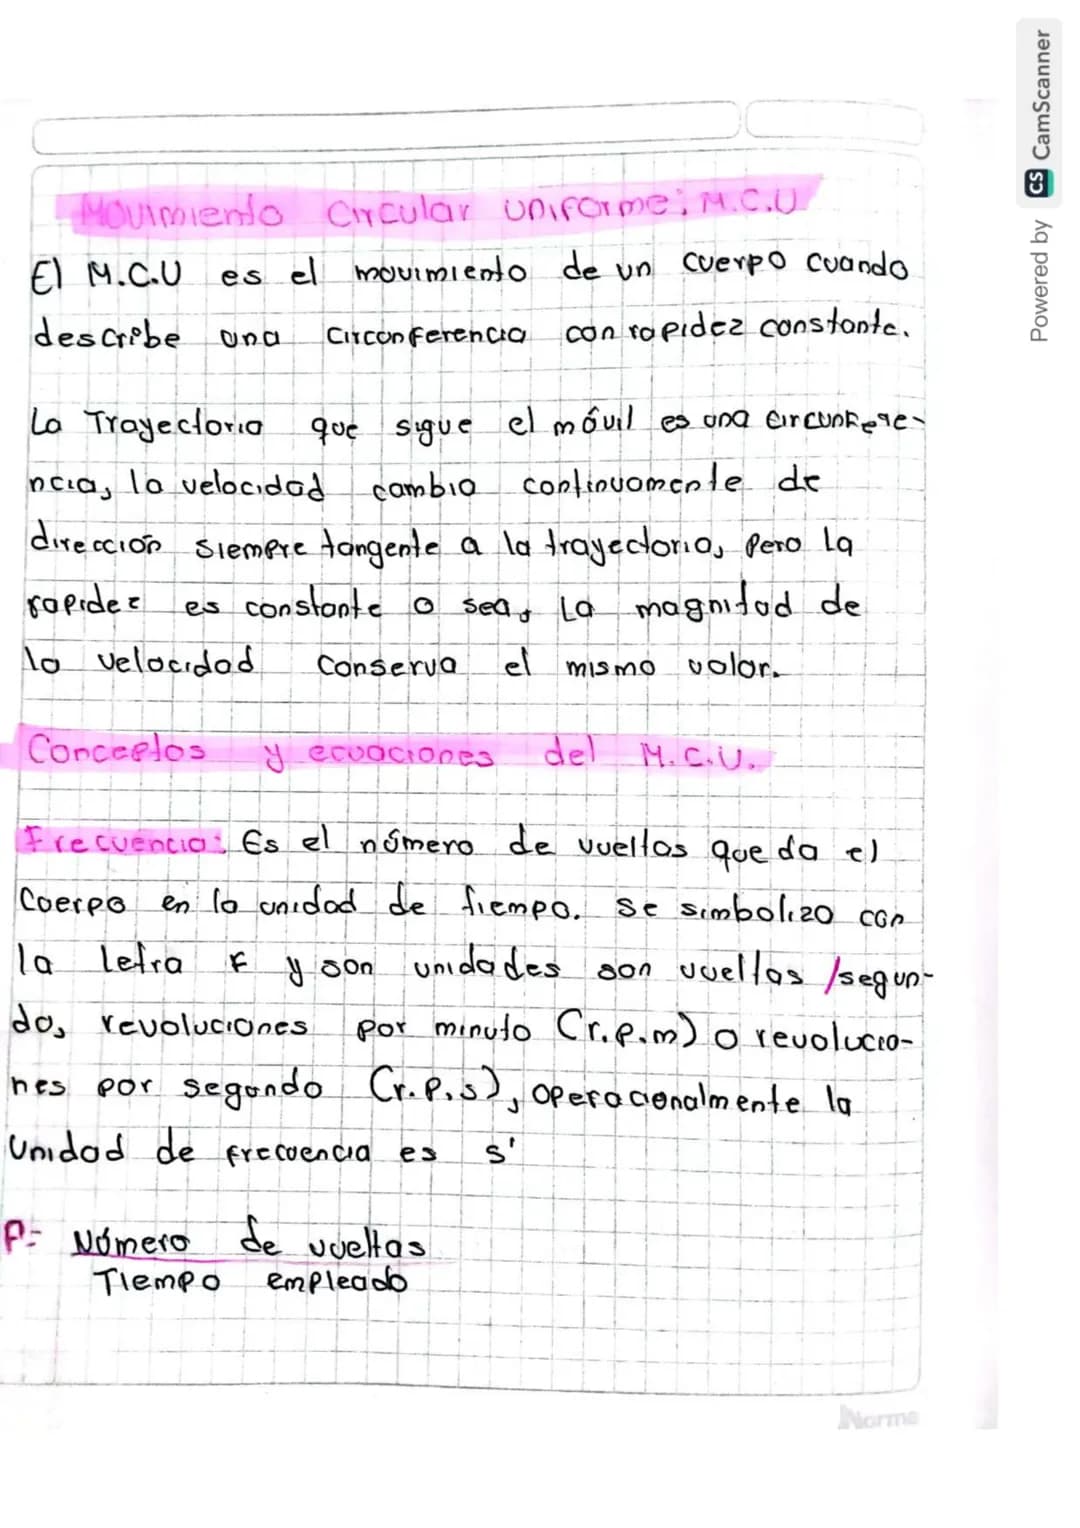 Movimiento Circular uniforme: M.C.U
El M.C.U es el movimiento de un cuerpo cuando
describe una circonferencia con rapidez constante.
La Trayectoria que sigue el móvil es una circunfere-
ncia, la velocidad cambia continuamente de
dirección siempre tangente a la trayectoria, pero la
rapidez es constante o sea, la magnitud de
la velocidad conserva el mismo valor.
Conceptos y ecuaciones del M.C.U.
Frecuencia: Es el número de vueltas que da el
Cuerpo en la unidad de tiempo. Se simboliza con
la letra F y son unidades son vueltas /segun-
do, revoluciones por minuto (r.p.m) o revolucio-
nes por segundo (r.p.s), operacionalmente la
Unidad de frecuencia es s'
F= Número de vueltas
Tiempo empleado
Norma
Powered by CS CamScanner